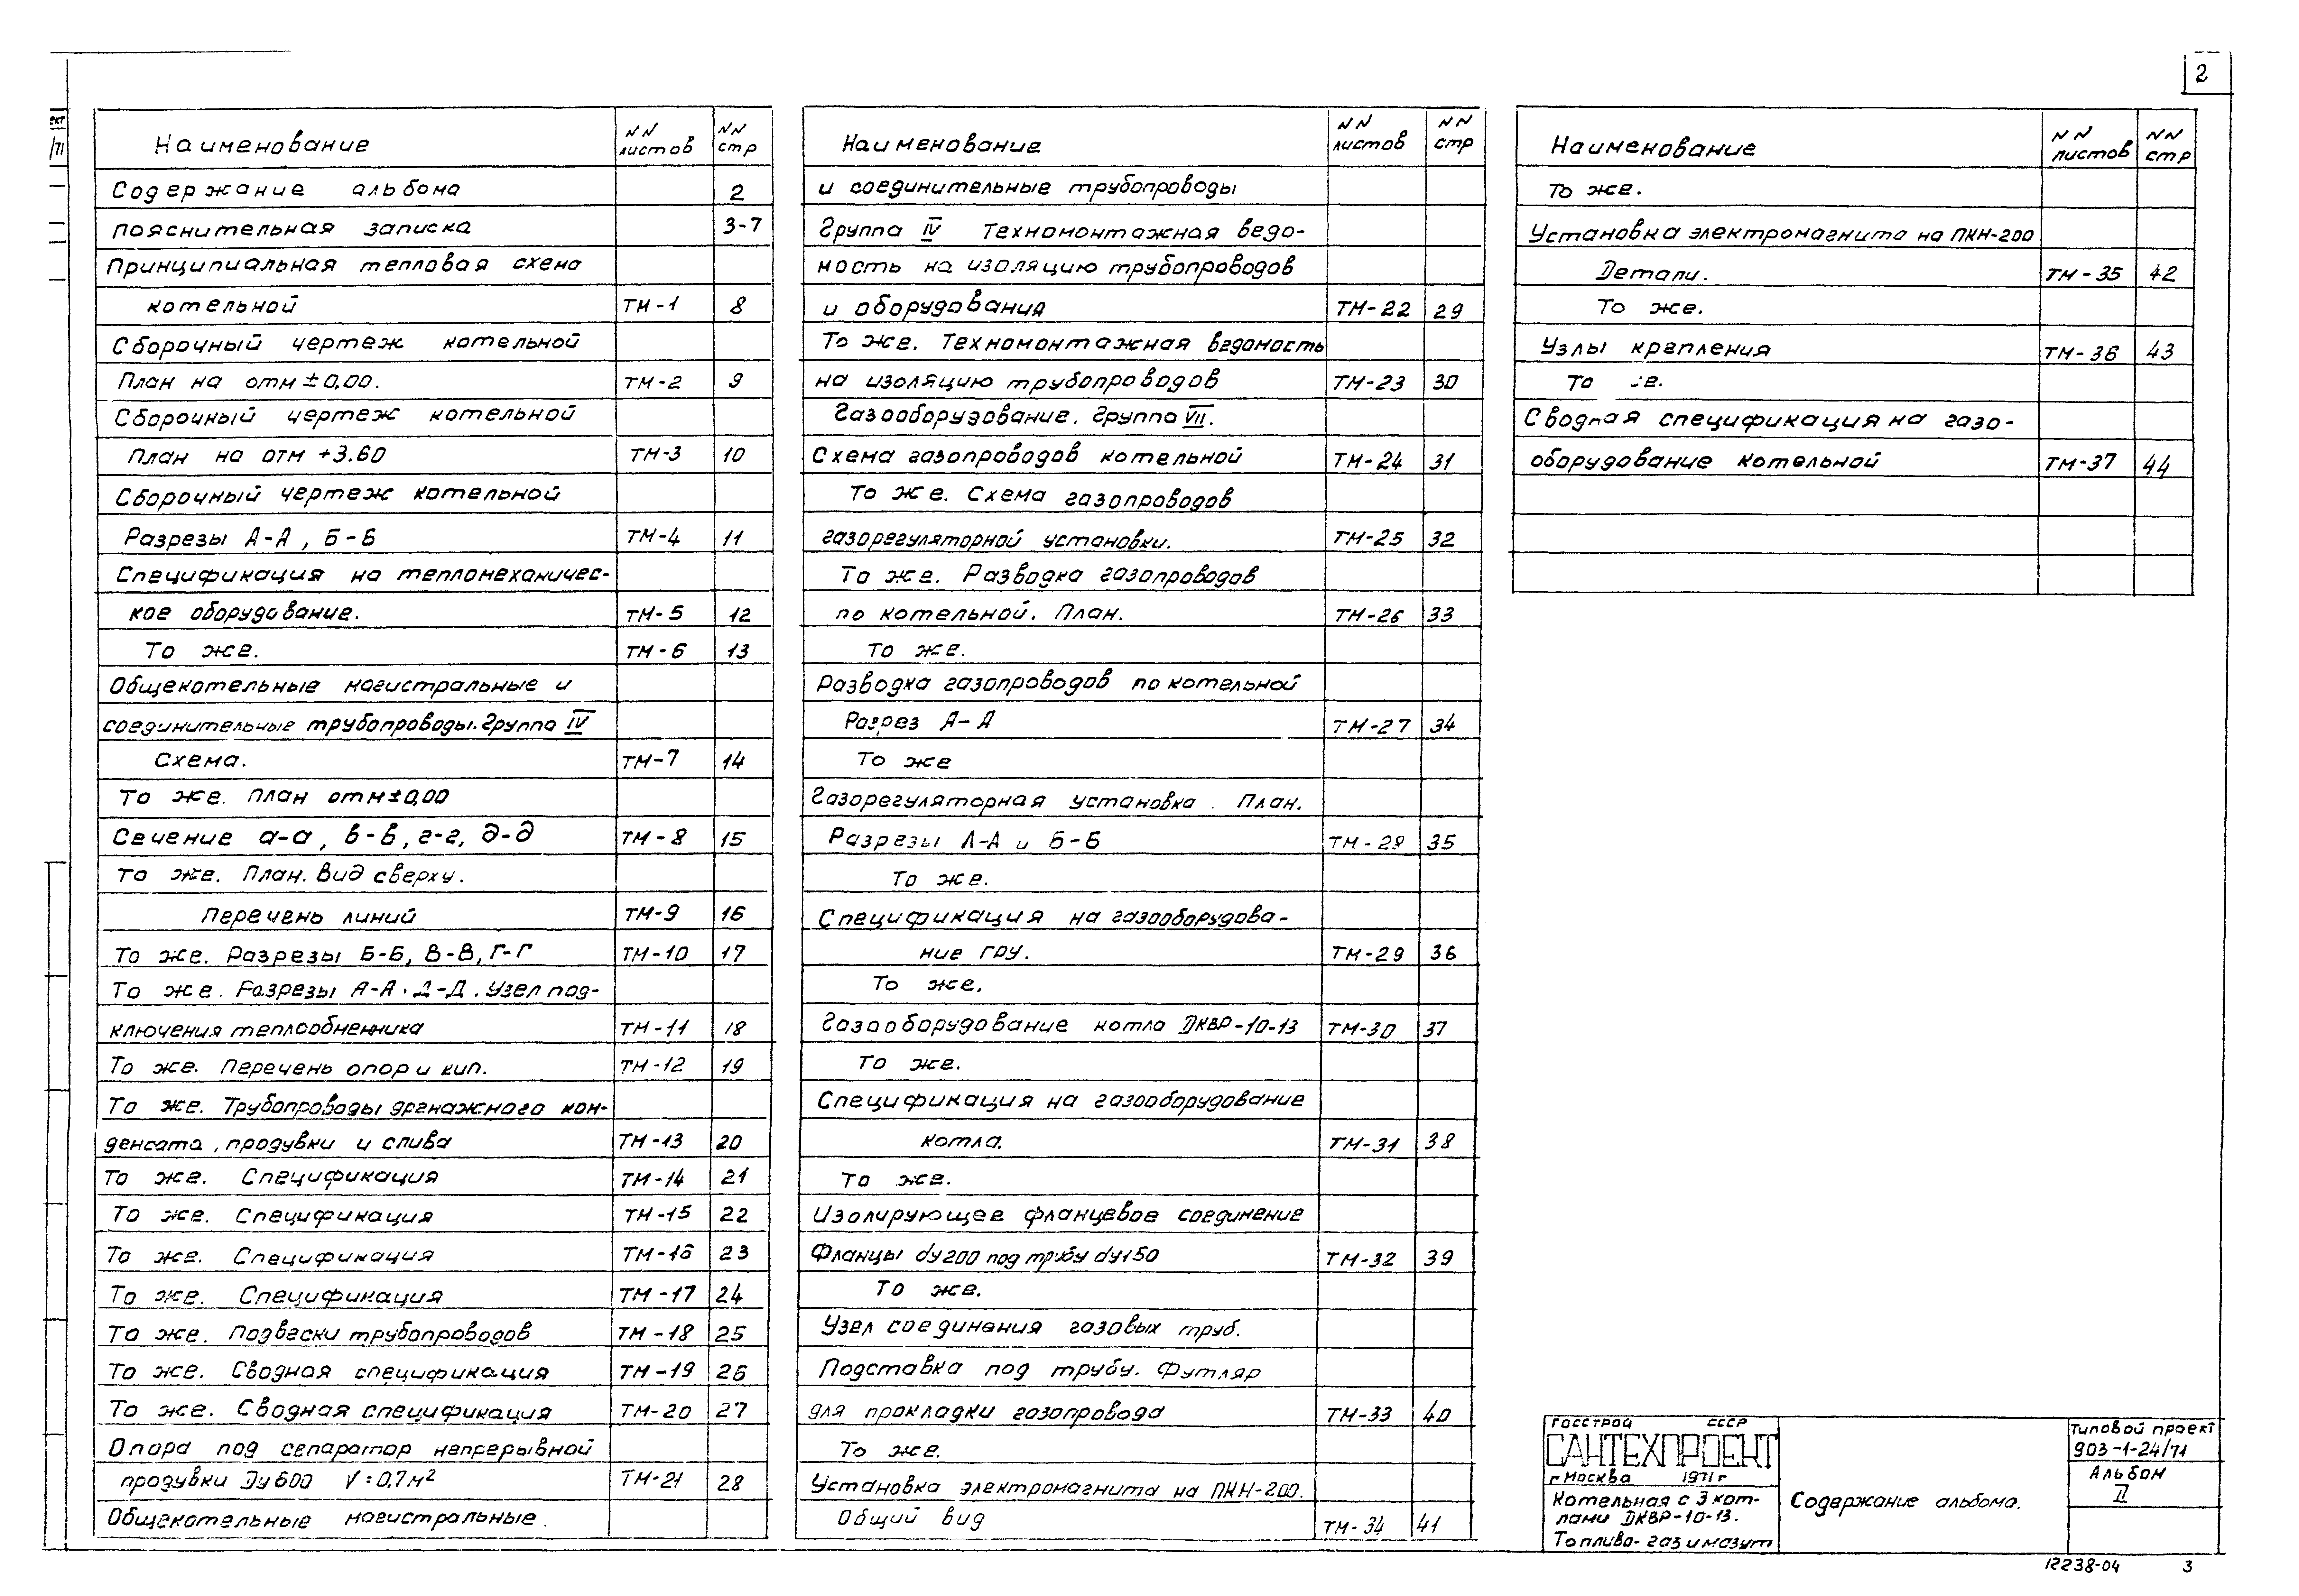 2
ект
/71
Наименование NN листов NN стр
Содержание альбома 2
пояснительная записка 3-7
Принципиальная тепловая схема
котельной ТМ-1 8
Сборочный чертеж котельной
План на отм ±0,00. ТМ-2 9
Сборочный чертеж котельной
План на отм +3.60 ТМ-3 10
Сборочный чертеж котельной
Разрезы А-А, Б-Б ТМ-4 11
Спецификация на тепломеханичес-
кое оборудование. ТМ-5 12
То же. ТМ-6 13
Общекотельные магистральные и
соединительные трубопроводы. Группа IV
Схема. ТМ-7 14
То же. План отм ±0,00
Сечение а-а, в-в, г-г, д-д ТМ-8 15
То же. План. Вид сверху.
Перечень линий ТМ-9 16
То же. Разрезы Б-Б, В-В, Г-Г ТМ-10 17
То же. Разрезы А-А. Д-Д. Узел под-
ключения теплообменника ТМ-11 18
То же. Перечень опор и кип. ТМ-12 19
То же. Трубопроводы дренажного кон-
денсата, продувки и слива ТМ-13 20
То же. Спецификация ТМ-14 21
То же. Спецификация ТМ-15 22
То же. Спецификация ТМ-16 23
То же. Спецификация ТМ-17 24
То же. Подвески трубопроводов ТМ-18 25
То же. Сводная спецификация ТМ-19 26
То же. Сводная спецификация ТМ-20 27
Опора под сепаратор непрерывной
продувки Ду600 V=0,7м² ТМ-21 28
Общекотельные магистральные.
Наименование NN листов NN стр
и соединительные трубопроводы
Группа IV Техномонтажная ведо-
мость на изоляцию трубопроводов
и оборудования ТМ-22 29
То же. Техномонтажная ведомость
на изоляцию трубопроводов ТМ-23 30
Газооборудование. Группа VII.
Схема газопроводов котельной ТМ-24 31
То же. Схема газопроводов
газорегуляторной установки. ТМ-25 32
То же. Разводка газопроводов
по котельной. План. ТМ-26 33
То же.
Разводка газопроводов по котельной
Разрез А-А ТМ-27 34
То же
Газорегуляторная установка. План.
Разрезы А-А и Б-Б ТМ-28 35
То же.
Спецификация на газооборудова-
ние ГРУ. ТМ-29 36
То же.
Газооборудование котла ДКВР-10-13 ТМ-30 37
То же.
Спецификация на газооборудование
котла. ТМ-31 38
То же.
Изолирующее фланцевое соединение
Фланцы dу200 под трубу dу150 ТМ-32 39
То же.
Узел соединения газовых труб.
Подставка под трубу. Футляр
для прокладки газопровода ТМ-33 40
То же.
Установка электромагнита на ПКН-200.
Общий вид ТМ-34 41
Наименование NN листов NN стр
То же.
Установка электромагнита на ПКН-200
Детали. ТМ-35 42
То же.
Узлы крепления ТМ-36 43
То же.
Сводная спецификация на газо-
оборудование котельной ТМ-37 44
Госстрой СССР
САНТЕХПРОЕКТ
г. Москва 1971 г
Котельная с 3 кот-
лами ДКВР-10-13.
Топливо- газ и мазут
Содержание альбома.
Типовой проект
903-1-24/71
Альбом
II
12238-04 3